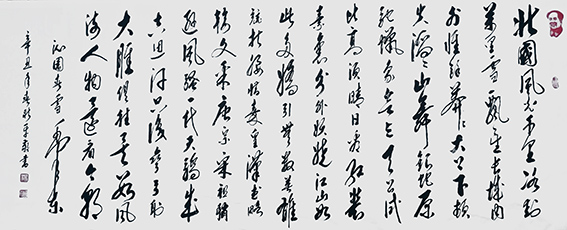 北國風光千里冰封
萬里雪飄望長城內
外惟餘莽莽大河上下頓
失滔滔山舞銀蛇原
馳蠟象欲與天公試
比高須晴日看紅裝
素裹分外妖嬈江山如
此多嬌引無數英雄
競折腰惜秦皇漢武略
輸文采唐宗宋祖稍
遜風騷一代天驕成
吉思汗只識彎弓射
大雕俱往矣數風
流人物還看今朝
沁園春雪毛澤東
辛丑年書